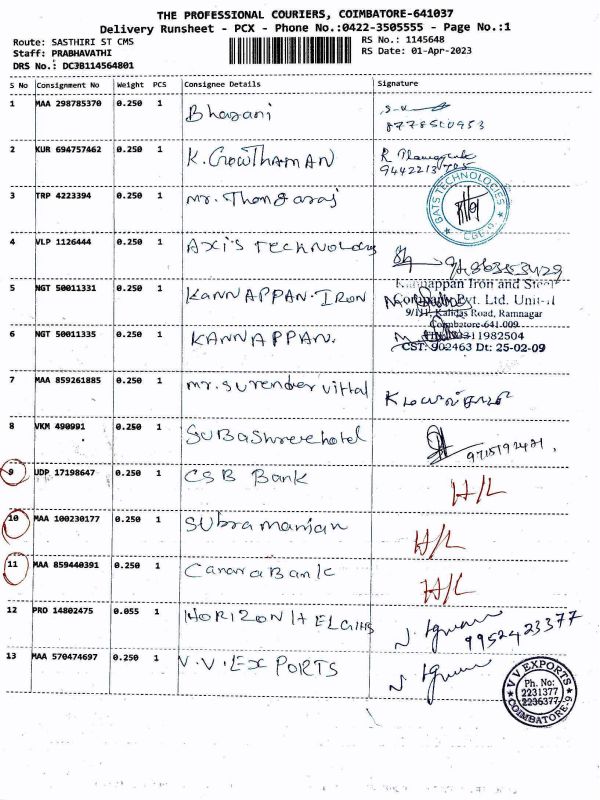 THE PROFESSIONAL COURIERS, COIMBATORE-641037
Delivery Runsheet - PCX - Phone No.:0422-3505555 - Page No.:1
Route: SASTHIRI ST CMS
RS No.: 1145648
Staff: PRABHAVATHI
RS Date: 01-Apr-2023
DRS No.: DC3B114564801
S No Consignment No Weight PCS Consignee Details Signature
1 MAA 298785370 0.250 1 Bhavani
8778560953
2 KUR 694757462 0.250 1 K. GOWTHAMAN R
3 TRP 4223394 0.250 1 Mr. Thangaraj
BATS TECHNOLOGIES
CBE-9
4 VLP 1126444 0.250 1 AXIS TECHNOLOGY
5 NGT 50011331 0.250 1 KANNAPPAN. IRON
Kannappan Iron and Steel
Company Pvt. Ltd. Unit-II
9/111, Kalidas Road, Ramnagar
Coimbatore-641 009
6 NGT 50011335 0.250 1 KANNAPPAN.
11982504
CST: 902463 Dt: 25-02-09
7 MAA 859261885 0.250 1 Mr. Surender Vittal
8 VKM 490991 0.250 1 SUBAShreehotel
9715192421.
9 UDP 17198647 0.250 1 CSB Bank H/L
10 MAA 100230177 0.250 1 SUbramanian H/L
11 MAA 859440391 0.250 1 Canara Bank H/L
12 PRO 14802475 0.055 1 HORIZON
9952423377
13 MAA 570474697 0.250 1 V.V.EXPORTS
V V EXPORTS
Ph. No:
2231377
2236377
COIMBATORE-9